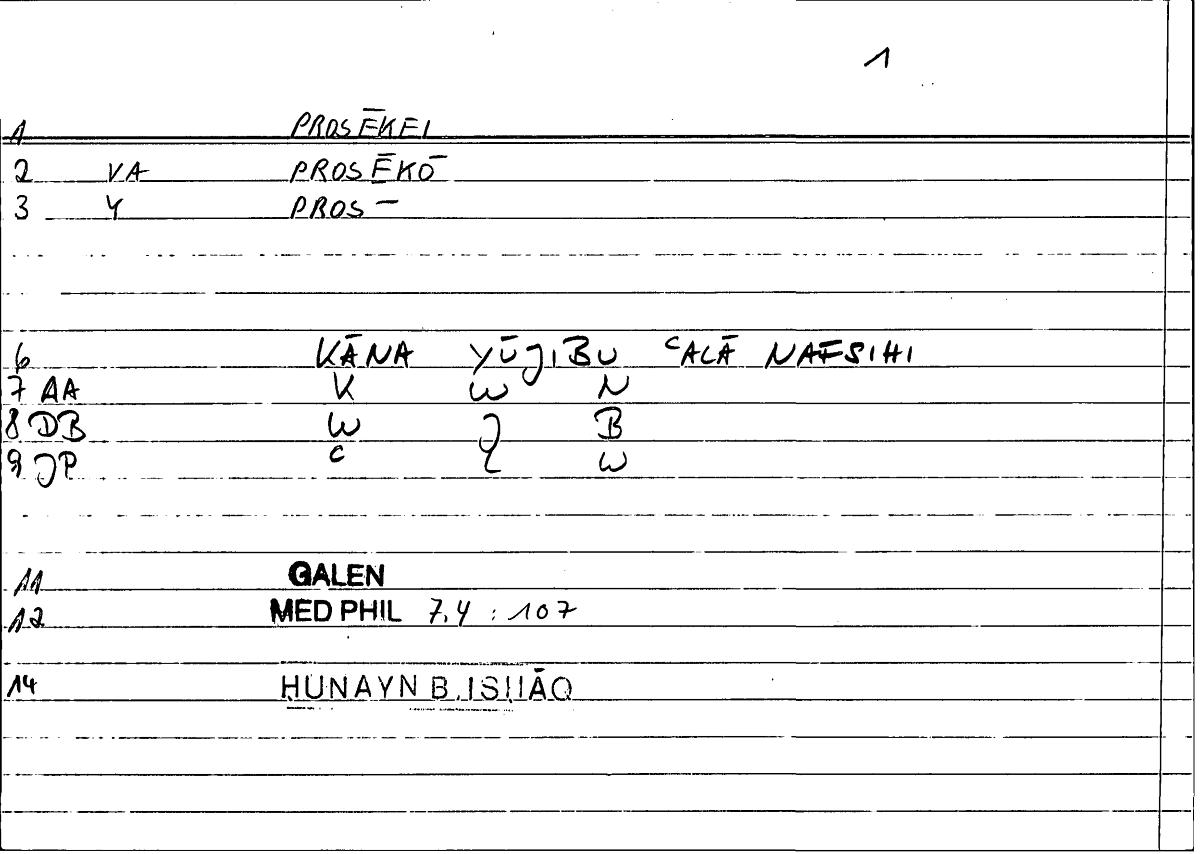 1
1 PROSĒKEI
2 VA PROSĒKŌ
3 Y PROS-
6 KĀNA YŪJIBU ʿALĀ NAFSIHI
7 AA K W N
8 DB W J B
9 JP ʿ L W
11 GALEN
12 MED PHIL 7,4 : 107
14 HUNAYN B. ISḤĀQ